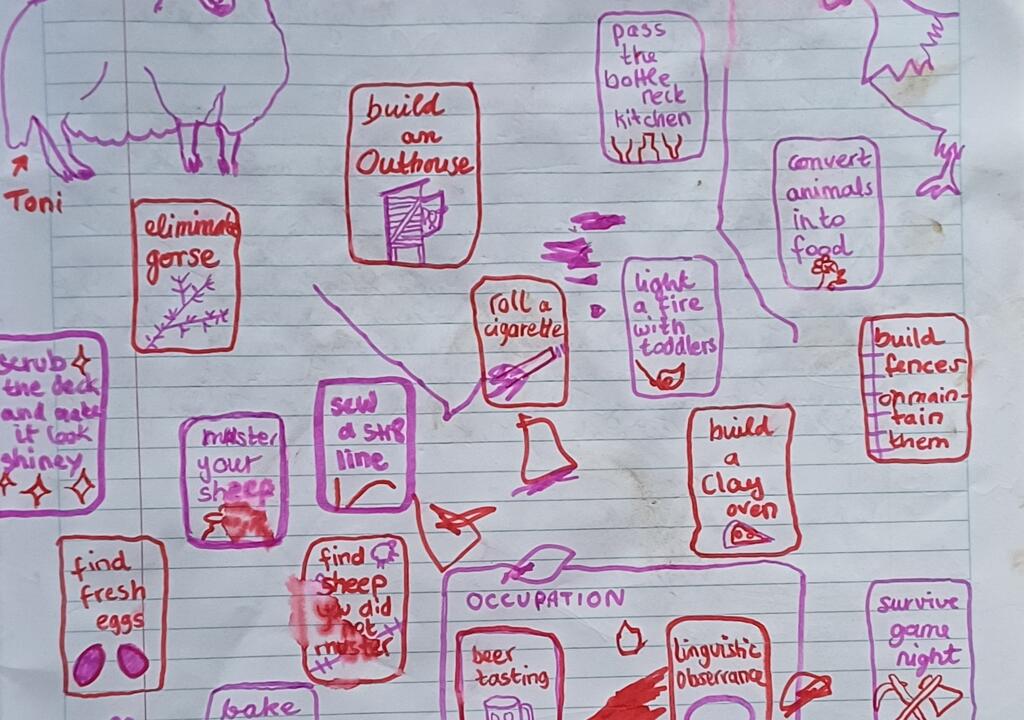 pass
the
bottle
neck
kitchen
build
an
Outhouse
convert
animals
into
food
Toni
eliminate
gorse
light
a fire
with
toddlers
roll a
cigarette
build
fences
or main-
tain
them
scrub
the deck
and make
it look
shiney
sew
a str8
line
muster
your
sheep
build
a
clay
oven
find
fresh
eggs
find
sheep
you did
not
muster
OCCUPATION
beer
tasting
linguistic
observance
survive
game
night
bake